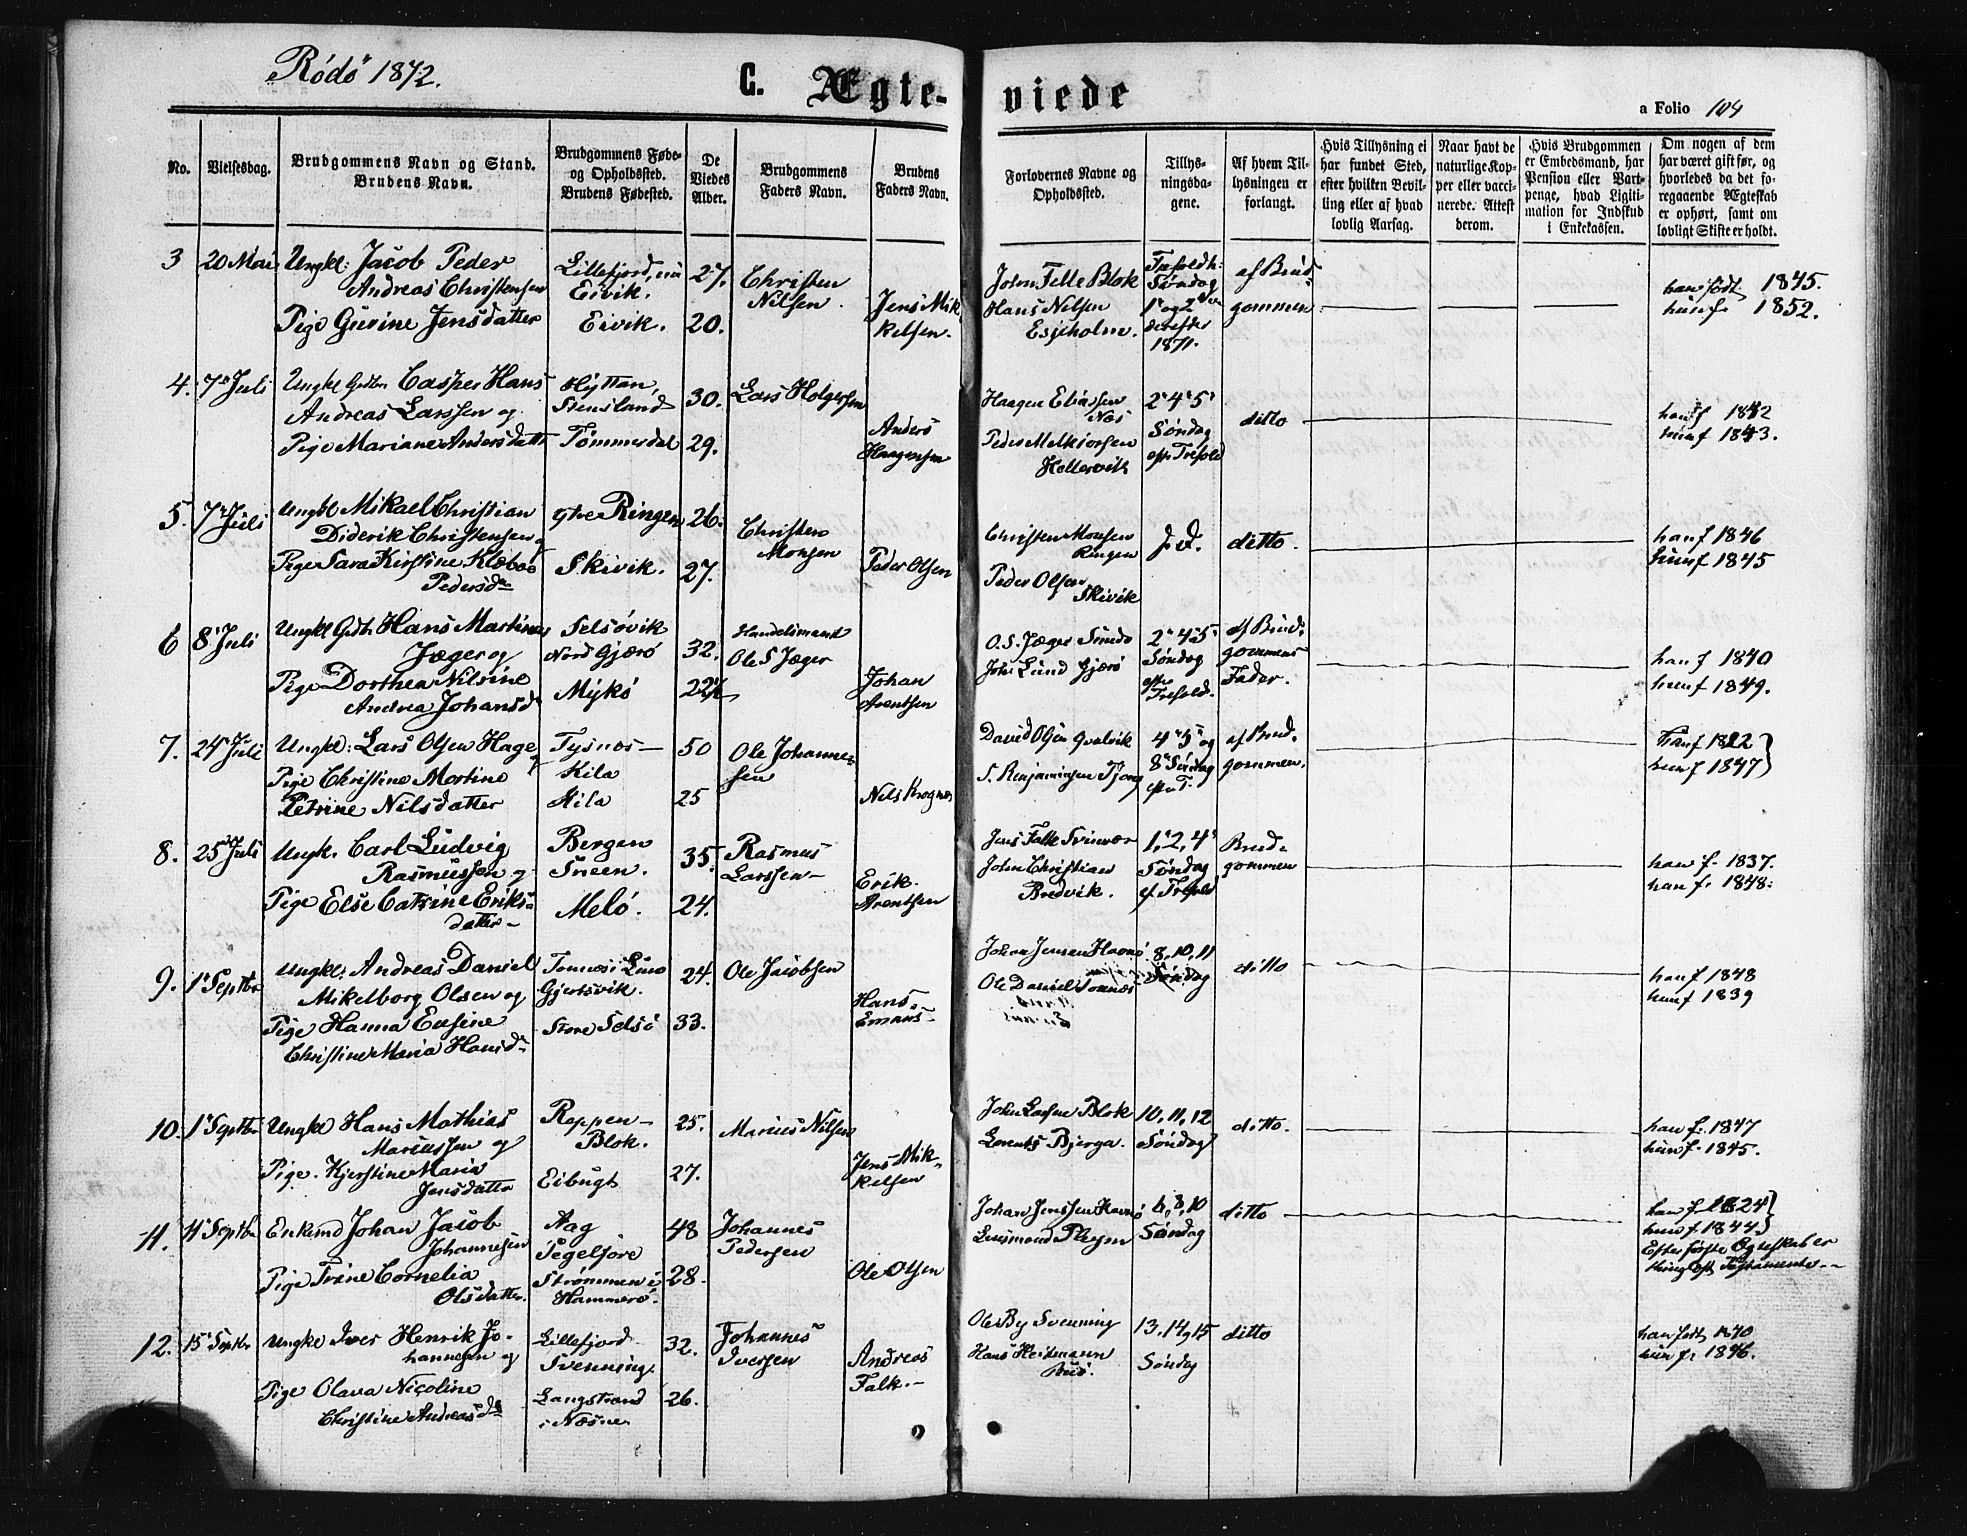 Rödö 1872.
C. Ægte-
viede
a Folio 104
No.
Vielsesdag.
Brudgommens Navn og Stand.
Brudens Navn.
Brudgommens Føde-
og Opholdssted.
Brudens Fødested.
De
Viedes
Alder.
Brudgommens
Faders Navn.
Brudens
Faders Navn.
Forlovernes Navne og
Opholdssted.
Tillys-
ningsda-
gene.
Af hvem Til-
lysningen er
forlangt.
Hvis Tillysning ei
har fundet Sted,
efter hvilken Bevil-
ling eller af hvad
lovlig Aarsag.
Naar havt de
naturlige Kop-
per eller vacci-
nerede. Attest
derom.
Hvis Brudgommen
er Embedsmand, har
Pension eller Vart-
penge, hvad Ligiti-
mation for Indskud
i Enkekassen.
Om nogen af dem
har været gift før, og
hvorledes da det fo-
regaaende Ægteskab
er ophørt, samt om
lovligt Skifte er holdt.
3
20 Mai
Ungkl: Jacob Peder
Andreas Christensen
Pige Gurine Jensdatter
Lillefjord, nu
Eivik.
Eivik.
27.
20.
Christen
Nilsen.
Jens Mik-
kelsen.
John Felle Blok
Hans Nilsen
Esjeholm.
Søndag
derefter
1871.
af Brud-
gommen
han født 1845.
hun f. 1852.
4.
7 Juli
Ungkl Casper Hans
Andreas Larssen og
Pige Mariane Andersdatt
Hyttan,
Stensland
Tømmerdal
30.
29.
Lars Holgersen
Anders
Haagensen
Haagen Eliassen
Næs
Peder Melkiorsen
2 4 5
Søndag
eft. Trefold
ditto
han f 1842
hun f 1843.
5.
7 Juli
Ungkl Mikael Christian
Diderik Christensen
Pige Sara Kirstine Klæboe
Pedersdr
ytre Ringen
Skivik.
26.
27.
Christen
Monsen
Peder Olsen
Christen Monsen
Ringen
Peder Olsen
Skivik
ditto.
han f 1846
hun f 1845
6
8 Juli
Ungkl Hans Martinus
Jæger og
Pige Dorthea Nilsine
Andrea Johansd
Selsøvik
Nord Gjærø
Mykø
32.
22
Handelsmand
Ole S Jæger
Johan
Arentsen
O. S. Jæger Sundø
Joh: Lund Gjærø
2 4 5
Søndag
efter
Trefold.
af Brud-
gommens
Fader.
han f 1840
hun f 1849.
7.
24 Juli
Ungkl: Lars Olsen Hage
Pige Christine Martine
Petrine Nilsdatter
Tysnes-
Kila
Kila
50
25
Ole Johanne-
sen
Nils Krognæs
David Olsen Qvalvik
S. Benjaminsen Tjong
4 5 og
8 Søndag
eft. T.
af Brud-
gommen.
han f 1822
hun f 1847
8.
25 Juli
Ungk. Carl Ludvig
Rasmussen og
Pige Else Catrine Eriks-
datter-
Bergen
Sneen.
Melö.
35.
24.
Rasmus
Larssen-
Erik
Arentsen
Jens Falk Svinvær
John Christian
Bredvik.
1, 2, 4
Søndag
ef. Trefold
Brud-
gommen
han f. 1837.
han f. 1848.
9.
1 Septbr
Ungkl: Andreas Daniel
Mikelborg Olsen og
Pige Hanna Eusine
Christine Maria Hansd.
Tonnes i Lurö
Gjertsvik.
Store Selsö
24.
33.
Ole Jacobsen
Hans
Emans-
Johan Jensen Havnø
Ole Daniel Tonnes
8, 10, 11
Søndag
ditto
han f 1848
hun f 1839
10.
1 Septbr
Ungkl Hans Mathias
Mariussen og
Pige. Kjerstine Maria
Jensdatter
Reppen-
Blok.
Eibugt
25.
27.
Marius Nilsen
Jens Mik-
kelsen
John Larsen Blok
Lorents Bjerga.
10, 11, 12
Søndag
ditto.
han f. 1847
hun f. 1845.
11.
4 Septbr
Enkemd Johan Jacob
Johannesen
Pige Trine Cornelia
Olsdatter.
Aag
Pegelfore
Strømmen i
Hammerö.
48
28.
Johannes
Pedersen
Ole Olsen
Johan Jenssen Havnø
6, 8, 10
Søndag
ditto
han f. 1824
hun f. 1844
Efter første Egteskab er
thinglest Testamente.-
12.
15 Septbr
Ungkl Iver Henrik Jo-
hannesen og
Pige Olava Nicoline
Christine Andreasdr
Lillefjord
Svenning.
Langstrand
i Næsne
32.
26.
Johannes
Iversen
Andreas
Falk.-
Ole By Svenning
Hans Heitmann
13, 14, 15
Søndag
ditto
han født 1840
hun f. 1846.